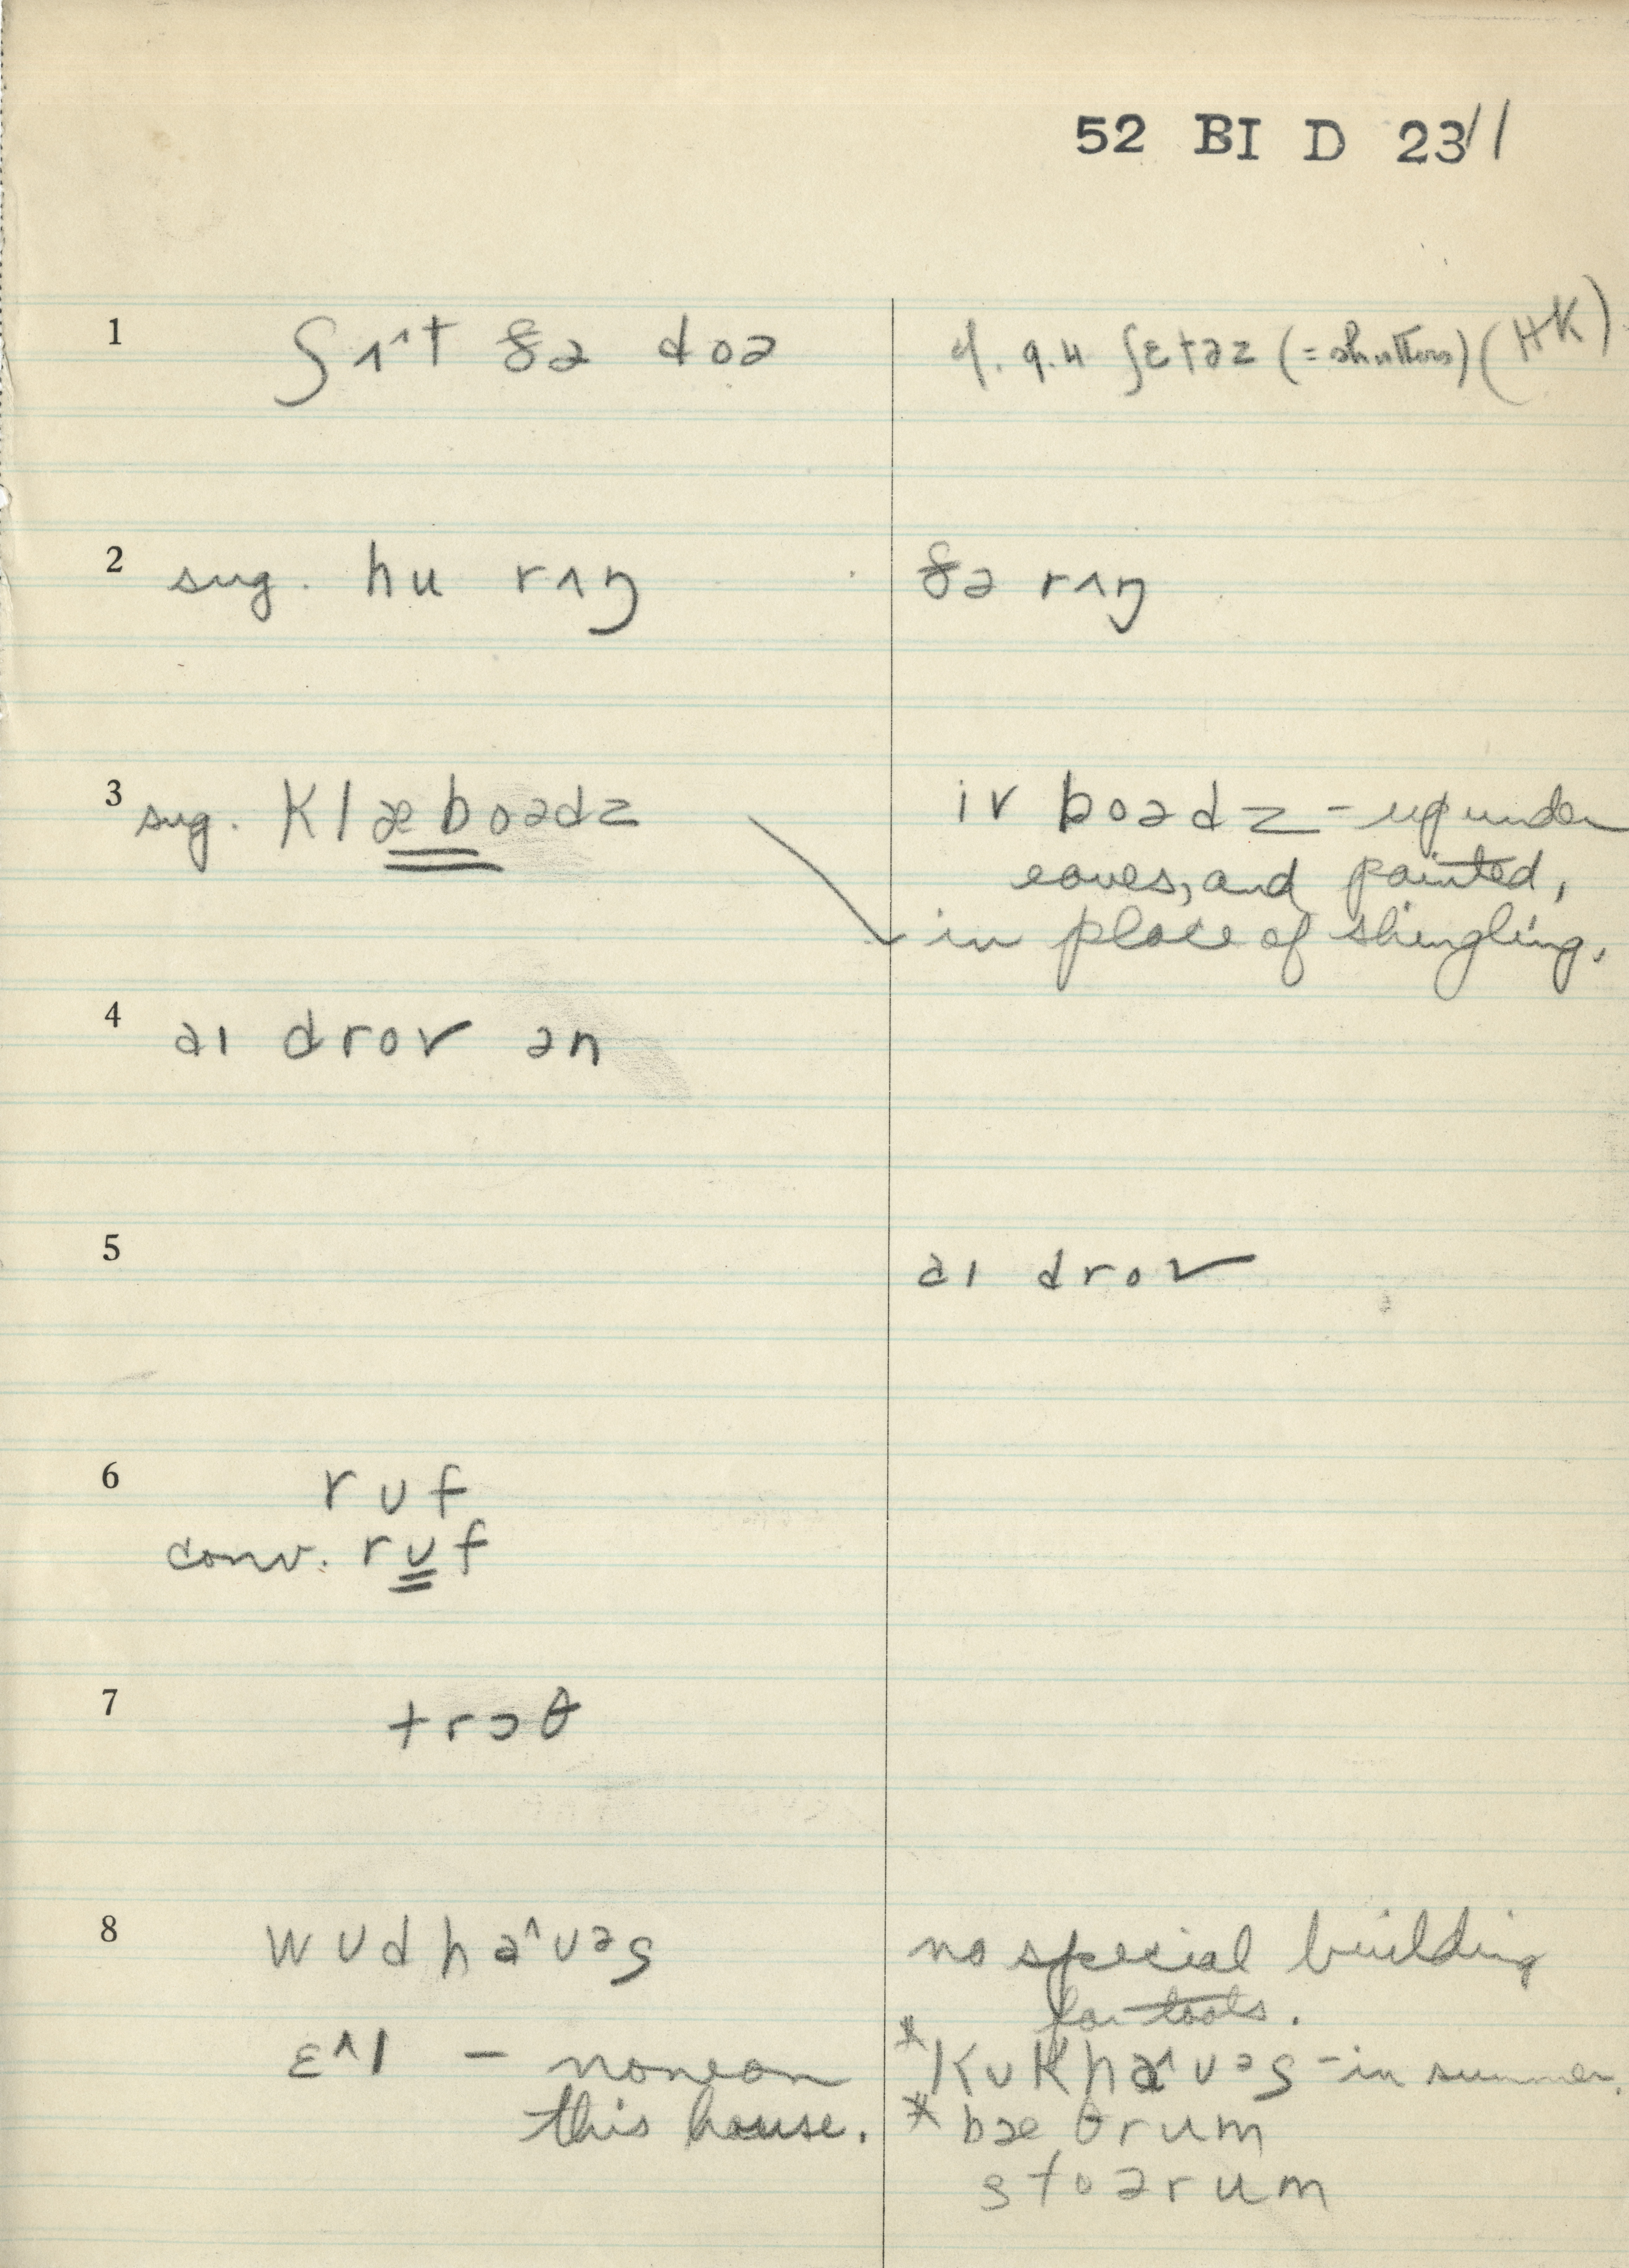 52 BI D 23 11
1 ʃʌ^t ðə doə
cf. 9.4 ʃɛtəz (= shutters) (HK)
2 sug. hu rʌŋ
ðə rʌŋ
3 sug. klæboədz
iv boədz – up under
eaves, and painted,
in place of shingling.
4 aɪ drov ən
5 aɪ drov
6 rʊf
conv. rʊf
7 trɔθ
8 wʊdha^ʊəs
no special building
for tools.
ɛ^l – none on
this house.
*kʊkha^ʊəs – in summer.
*bæθrum
stoərum